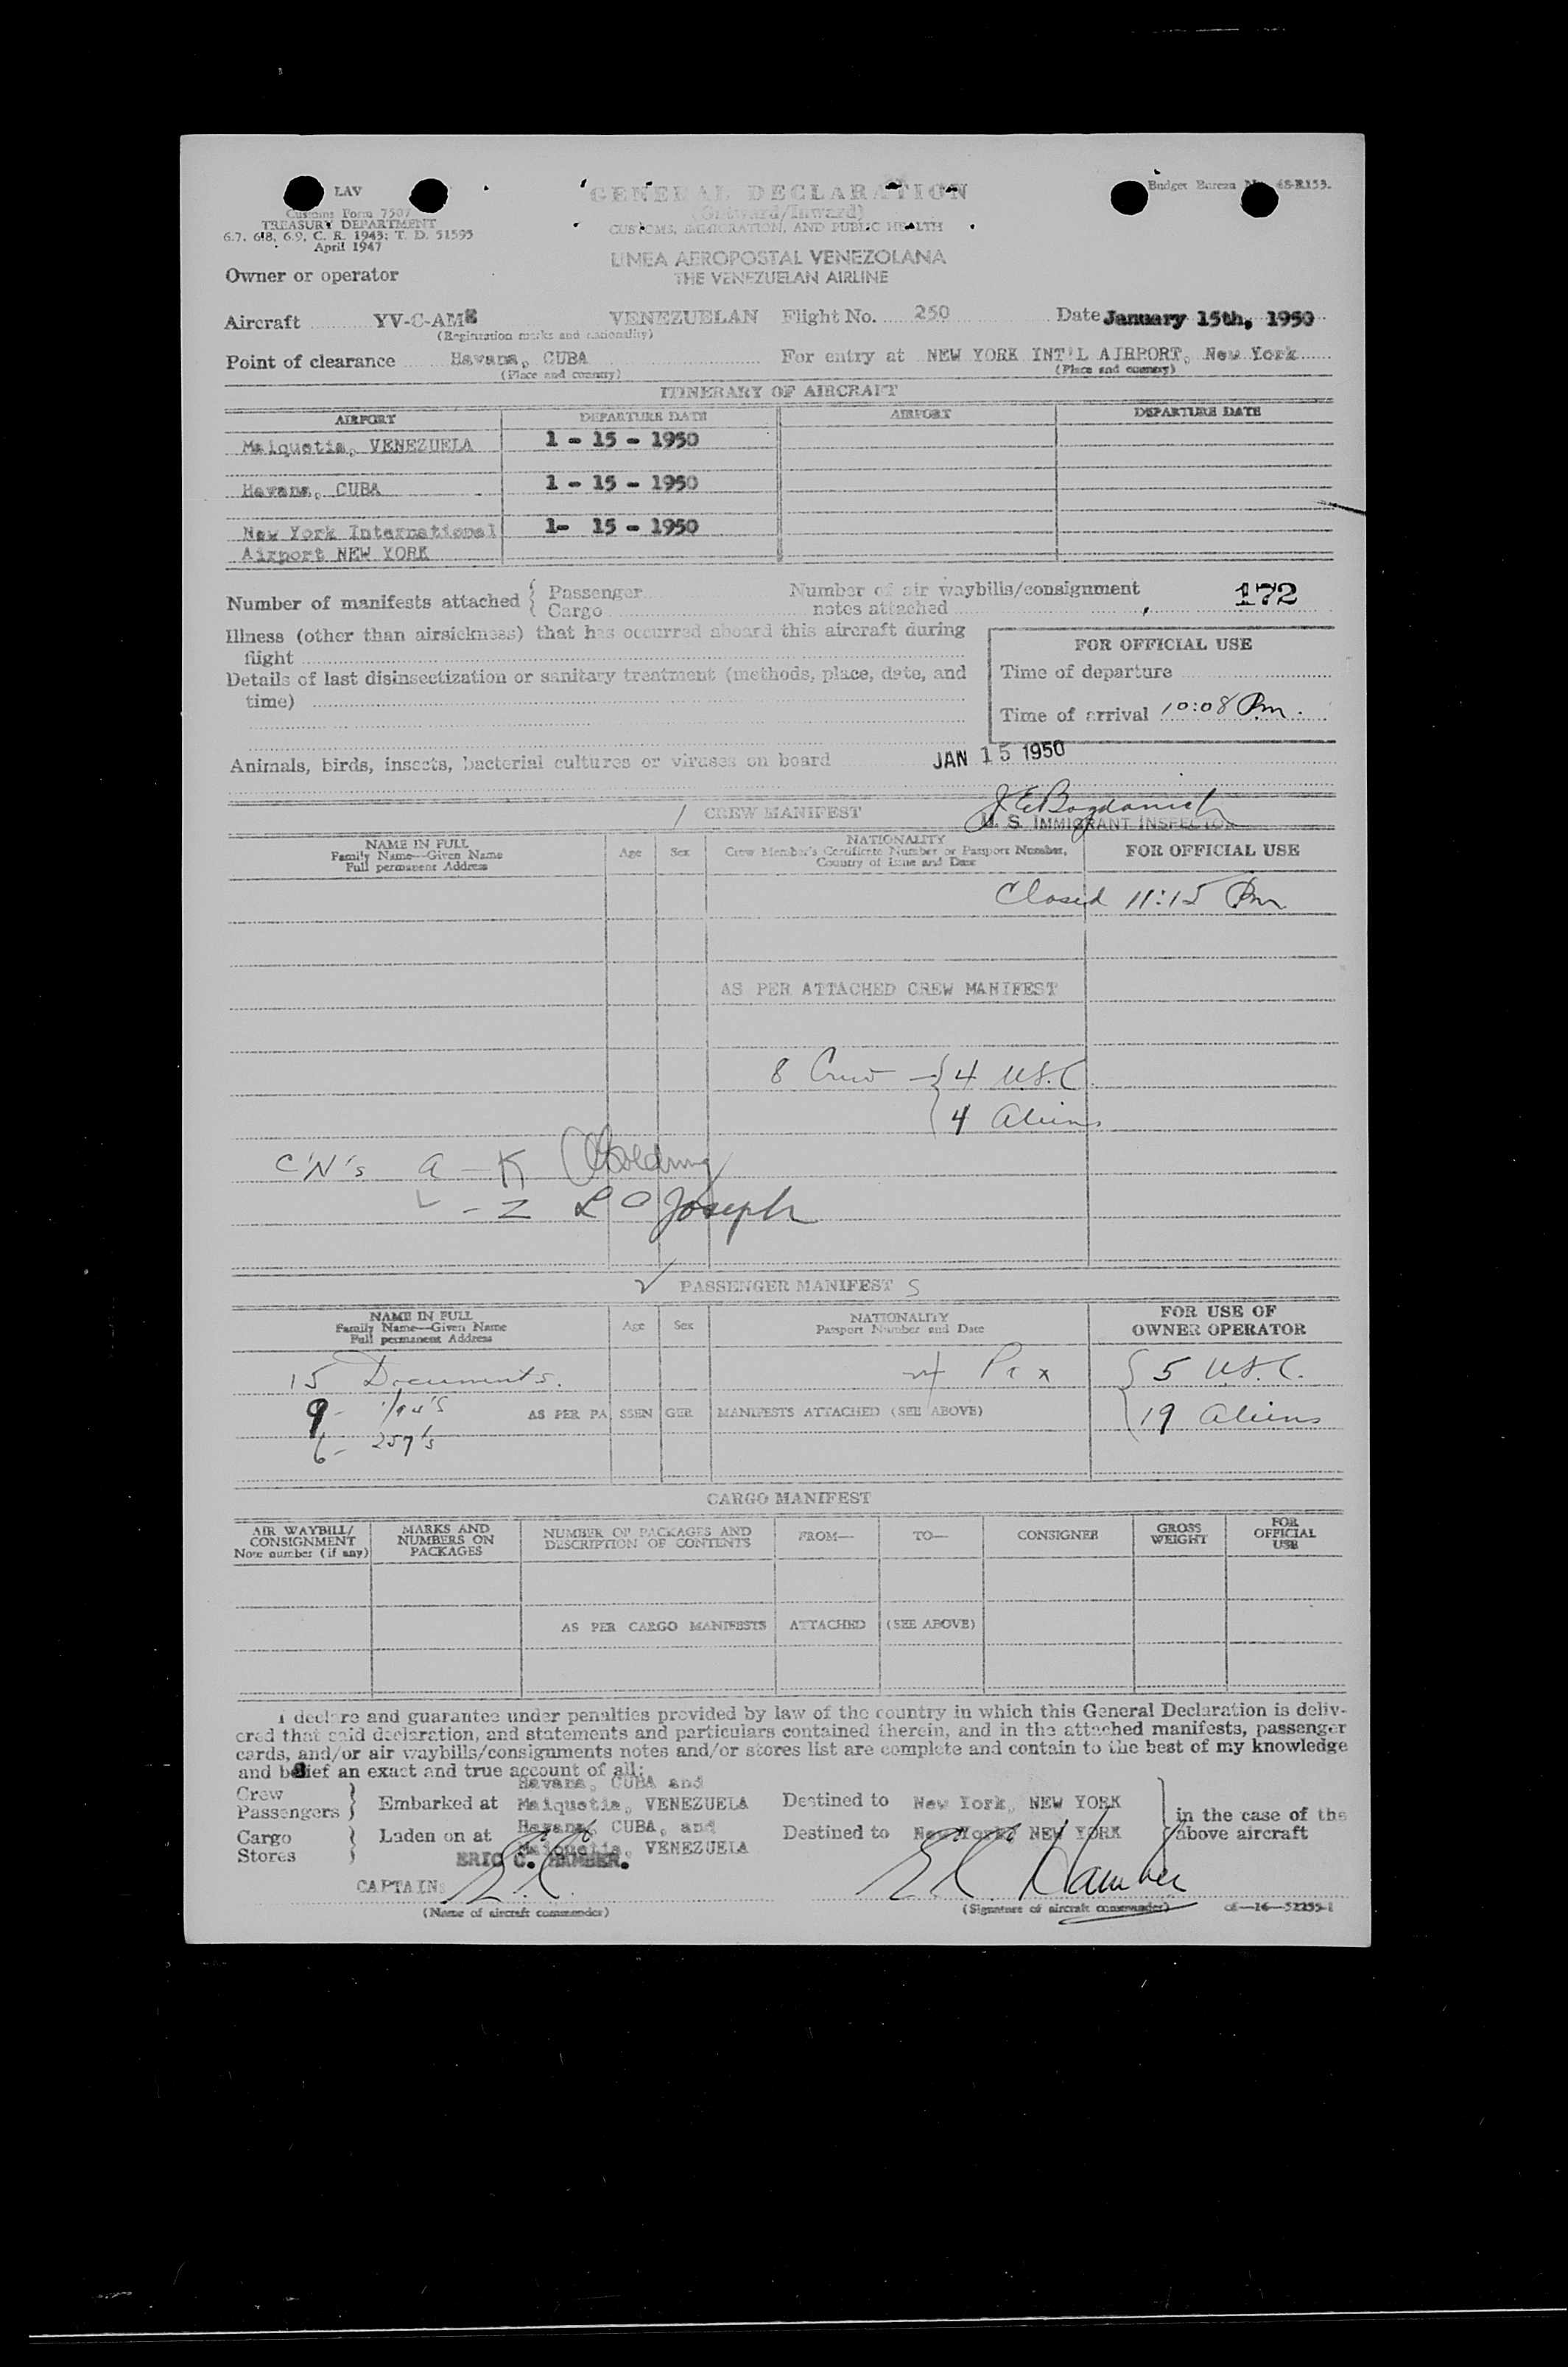 LAV
GENERAL DECLARATION
Budget Bureau No. 48-R153.
Customs Form 7507
(Outward/Inward)
TREASURY DEPARTMENT
CUSTOMS, IMMIGRATION, AND PUBLIC HEALTH
6.7, 6.8, 6.9, C. R. 1943; T. D. 51595
April 1947
LINEA AEROPOSTAL VENEZOLANA
Owner or operator
THE VENEZUELAN AIRLINE
Aircraft YV-C-AME VENEZUELAN Flight No. 250 Date January 15th, 1950
(Registration marks and nationality)
Point of clearance Havana, CUBA For entry at NEW YORK INT'L AIRPORT, New York
(Place and country) (Place and country)
ITINERARY OF AIRCRAFT
AIRPORT DEPARTURE DATE AIRPORT DEPARTURE DATE
Maiquetia, VENEZUELA 1 - 15 - 1950
Havana, CUBA 1 - 15 - 1950
New York International 1- 15 - 1950
Airport NEW YORK
Number of manifests attached { Passenger Number of air waybills/consignment 172
Cargo notes attached
Illness (other than airsickness) that has occurred aboard this aircraft during
flight
FOR OFFICIAL USE
Details of last disinsectization or sanitary treatment (methods, place, date, and
time)
Time of departure
Time of arrival 10:08 Pm.
Animals, birds, insects, bacterial cultures or viruses on board
JAN 15 1950
J E Bogdanich
/ CREW MANIFEST
U. S. IMMIGRANT INSPECTOR
NAME IN FULL Age Sex NATIONALITY FOR OFFICIAL USE
Family Name—Given Name Crew Member's Certificate Number or Passport Number,
Full permanent Address Country of issue and Date
Closed 11:15 Pm
AS PER ATTACHED CREW MANIFEST
8 Crew - { 4 U.S.C.
4 Aliens
C'N's a - K Golding
L - Z L O Joseph
✓ PASSENGER MANIFEST S
NAME IN FULL Age Sex NATIONALITY FOR USE OF
Family Name—Given Name Passport Number and Date OWNER OPERATOR
Full permanent Address
15 Documents. 24 Pax { 5 U.S.C.
9- I/94's AS PER PASSENGER MANIFESTS ATTACHED (SEE ABOVE) 19 Aliens
6- 257's
CARGO MANIFEST
AIR WAYBILL/ MARKS AND NUMBER OF PACKAGES AND FROM— TO— CONSIGNEE GROSS FOR
CONSIGNMENT NUMBERS ON DESCRIPTION OF CONTENTS WEIGHT OFFICIAL
Note number (if any) PACKAGES USE
AS PER CARGO MANIFESTS ATTACHED (SEE ABOVE)
I declare and guarantee under penalties provided by law of the country in which this General Declaration is deliv-
ered that said declaration, and statements and particulars contained therein, and in the attached manifests, passenger
cards, and/or air waybills/consignments notes and/or stores list are complete and contain to the best of my knowledge
and belief an exact and true account of all:
Havana, CUBA and
Crew
Passengers } Embarked at Maiquetia, VENEZUELA Destined to New York, NEW YORK } in the case of the
Havana, CUBA, and
Cargo } Laden on at Maiquetia, VENEZUELA Destined to New York NEW YORK above aircraft
Stores
ERIC C. HAMBER.
CAPTAIN: E.C. E.C. Hamber
(Name of aircraft commander) (Signature of aircraft commander) c8—16—52255-1